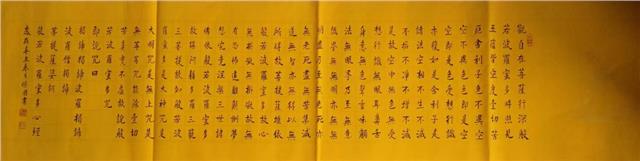 觀自在菩薩行深般
若波羅蜜多時照見
五蘊皆空度一切苦
厄舍利子色不異空
空不異色色即是空
空即是色受想行識
亦復如是舍利子是
諸法空相不生不滅
不垢不淨不增不減
是故空中無色無受
想行識無眼耳鼻舌
身意無色聲香味觸
法無眼界乃至無意
識界無無明亦無無
明盡乃至無老死亦
無老死盡無苦集滅
道無智亦無得以無
所得故菩提薩埵依
般若波羅蜜多故心
無罣礙無罣礙故無
有恐怖遠離顛倒夢
想究竟涅槃三世諸
佛依般若波羅蜜多
故得阿耨多羅三藐
三菩提故知般若波
羅蜜多是大神咒是
大明咒是無上咒是
無等等咒能除一切
苦真實不虛故說般
若波羅蜜多咒
即說咒曰
揭諦揭諦波羅揭諦
波羅僧揭諦
菩提薩婆訶
般若波羅蜜多心經
歲在辛丑春月書